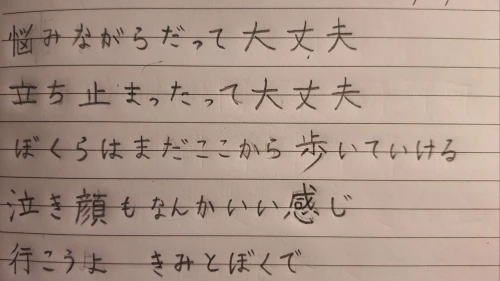 悩みながらだって大丈夫
立ち止まったって大丈夫
ぼくらはまだここから歩いていける
泣き顔もなんかいい感じ
行こうよ　きみとぼくで